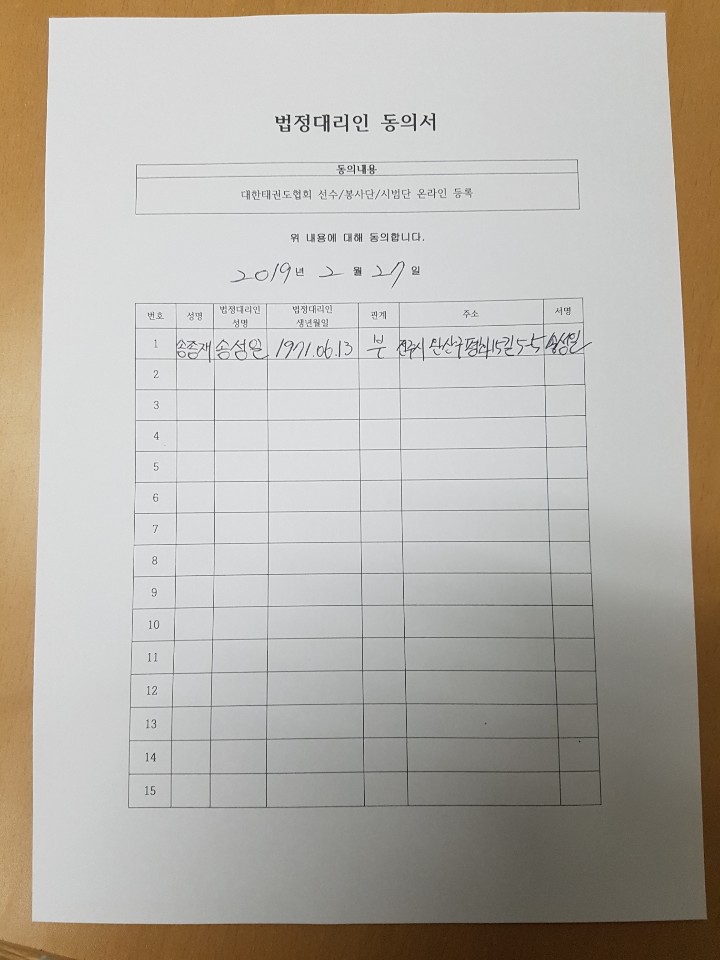 법정대리인 동의서
동의내용
대한태권도협회 선수/봉사단/시범단 온라인 등록
위 내용에 대해 동의합니다.
2019년 2월 27일
번호 성명 법정대리인 성명 법정대리인 생년월일 관계 주소 서명
1 송종재 송성일 1971.06.13 부 전주시 완산구 15길 5-5 송성일
2
3
4
5
6
7
8
9
10
11
12
13
14
15